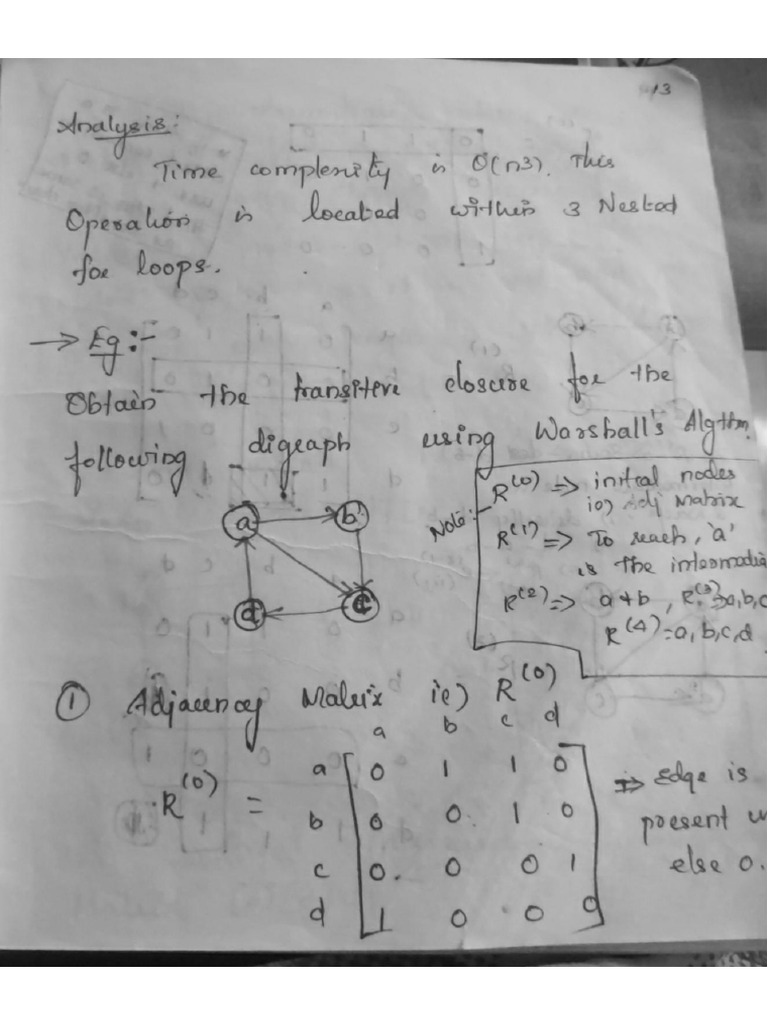 13
Analysis:
Time complexity is O(n3). This
Operation is located within 3 Nested
for loops.
→ Eg:-
Obtain the transitive closure for the
following digraph using Warshall's Algthm.
Note:- R(0) => initial nodes
ie) adj Matrix
R(1) => To reach, 'a'
is the intermedia
R(2) => a & b, R(3) => a, b, c
R(4) = a, b, c, d
a b
d c
① Adjacency Matrix ie) R(0)
a b c d
a 0 1 1 0
R(0) = b 0 0 1 0
c 0 0 0 1
d 1 0 0 0
=> Edge is
present
else 0.